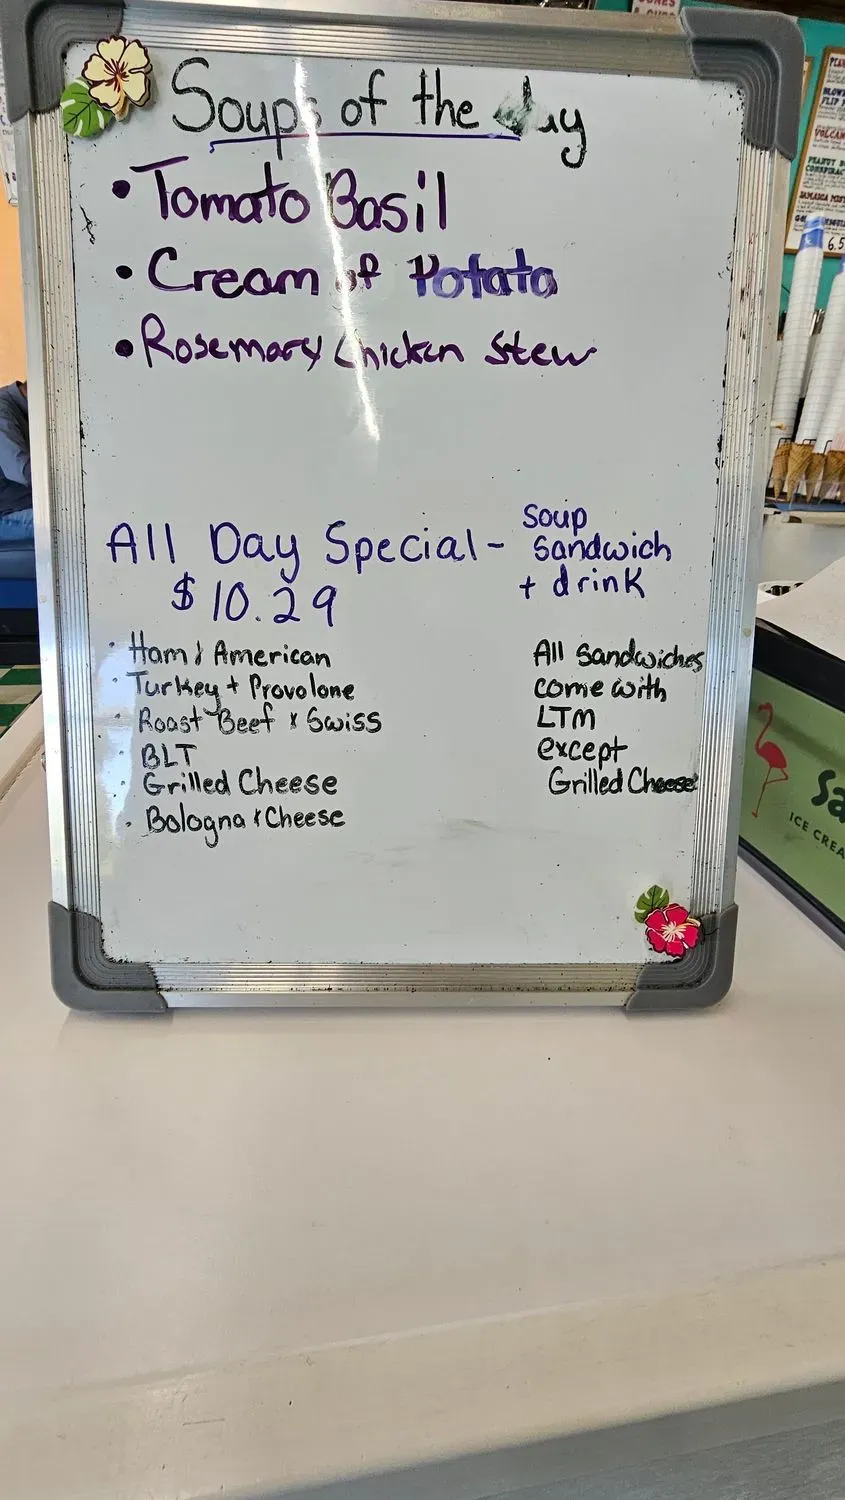 Soups of the day
• Tomato Basil
• Cream of Potato
• Rosemary Chicken Stew
All Day Special -
$10.29
Soup
Sandwich
+ drink
· Ham & American
· Turkey + Provolone
· Roast Beef & Swiss
· BLT
· Grilled Cheese
· Bologna & Cheese
All Sandwiches
come with
LTM
except
Grilled Cheese
ICE CREA
PEANUT B
6.5